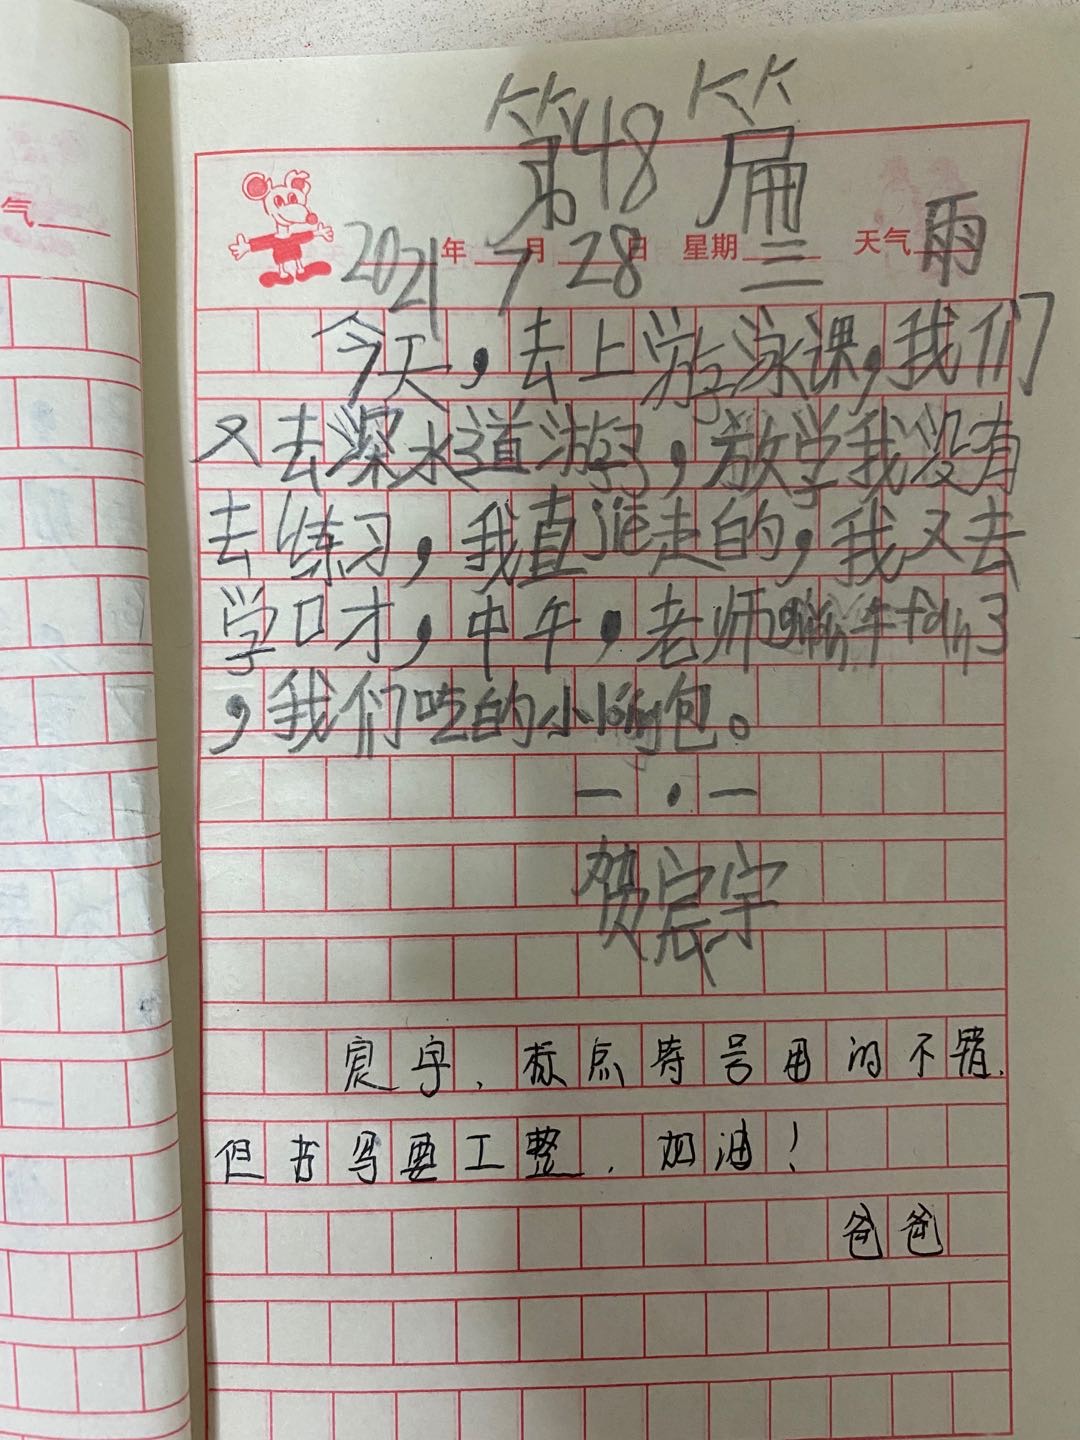 第48篇
2021年7月28日 星期三 天气雨
气
今天，去上游泳课，我们
又去深水道游了，放学我没有
去练习，我直jie走的，我又去
学口才，中午，老师 午fàn了
，我们吃的小lóng包。
一·一
贺宸宇
宸宇，标点符号用的不错，
但书写要工整，加油！
爸爸